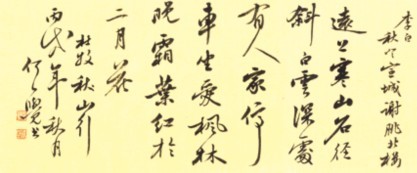 李白
秋登宣城謝朓北樓
遠上寒山石徑
斜白雲深處
有人家停
車坐愛楓林
晚霜葉紅於
二月花
杜牧秋山行
丙戌年秋月